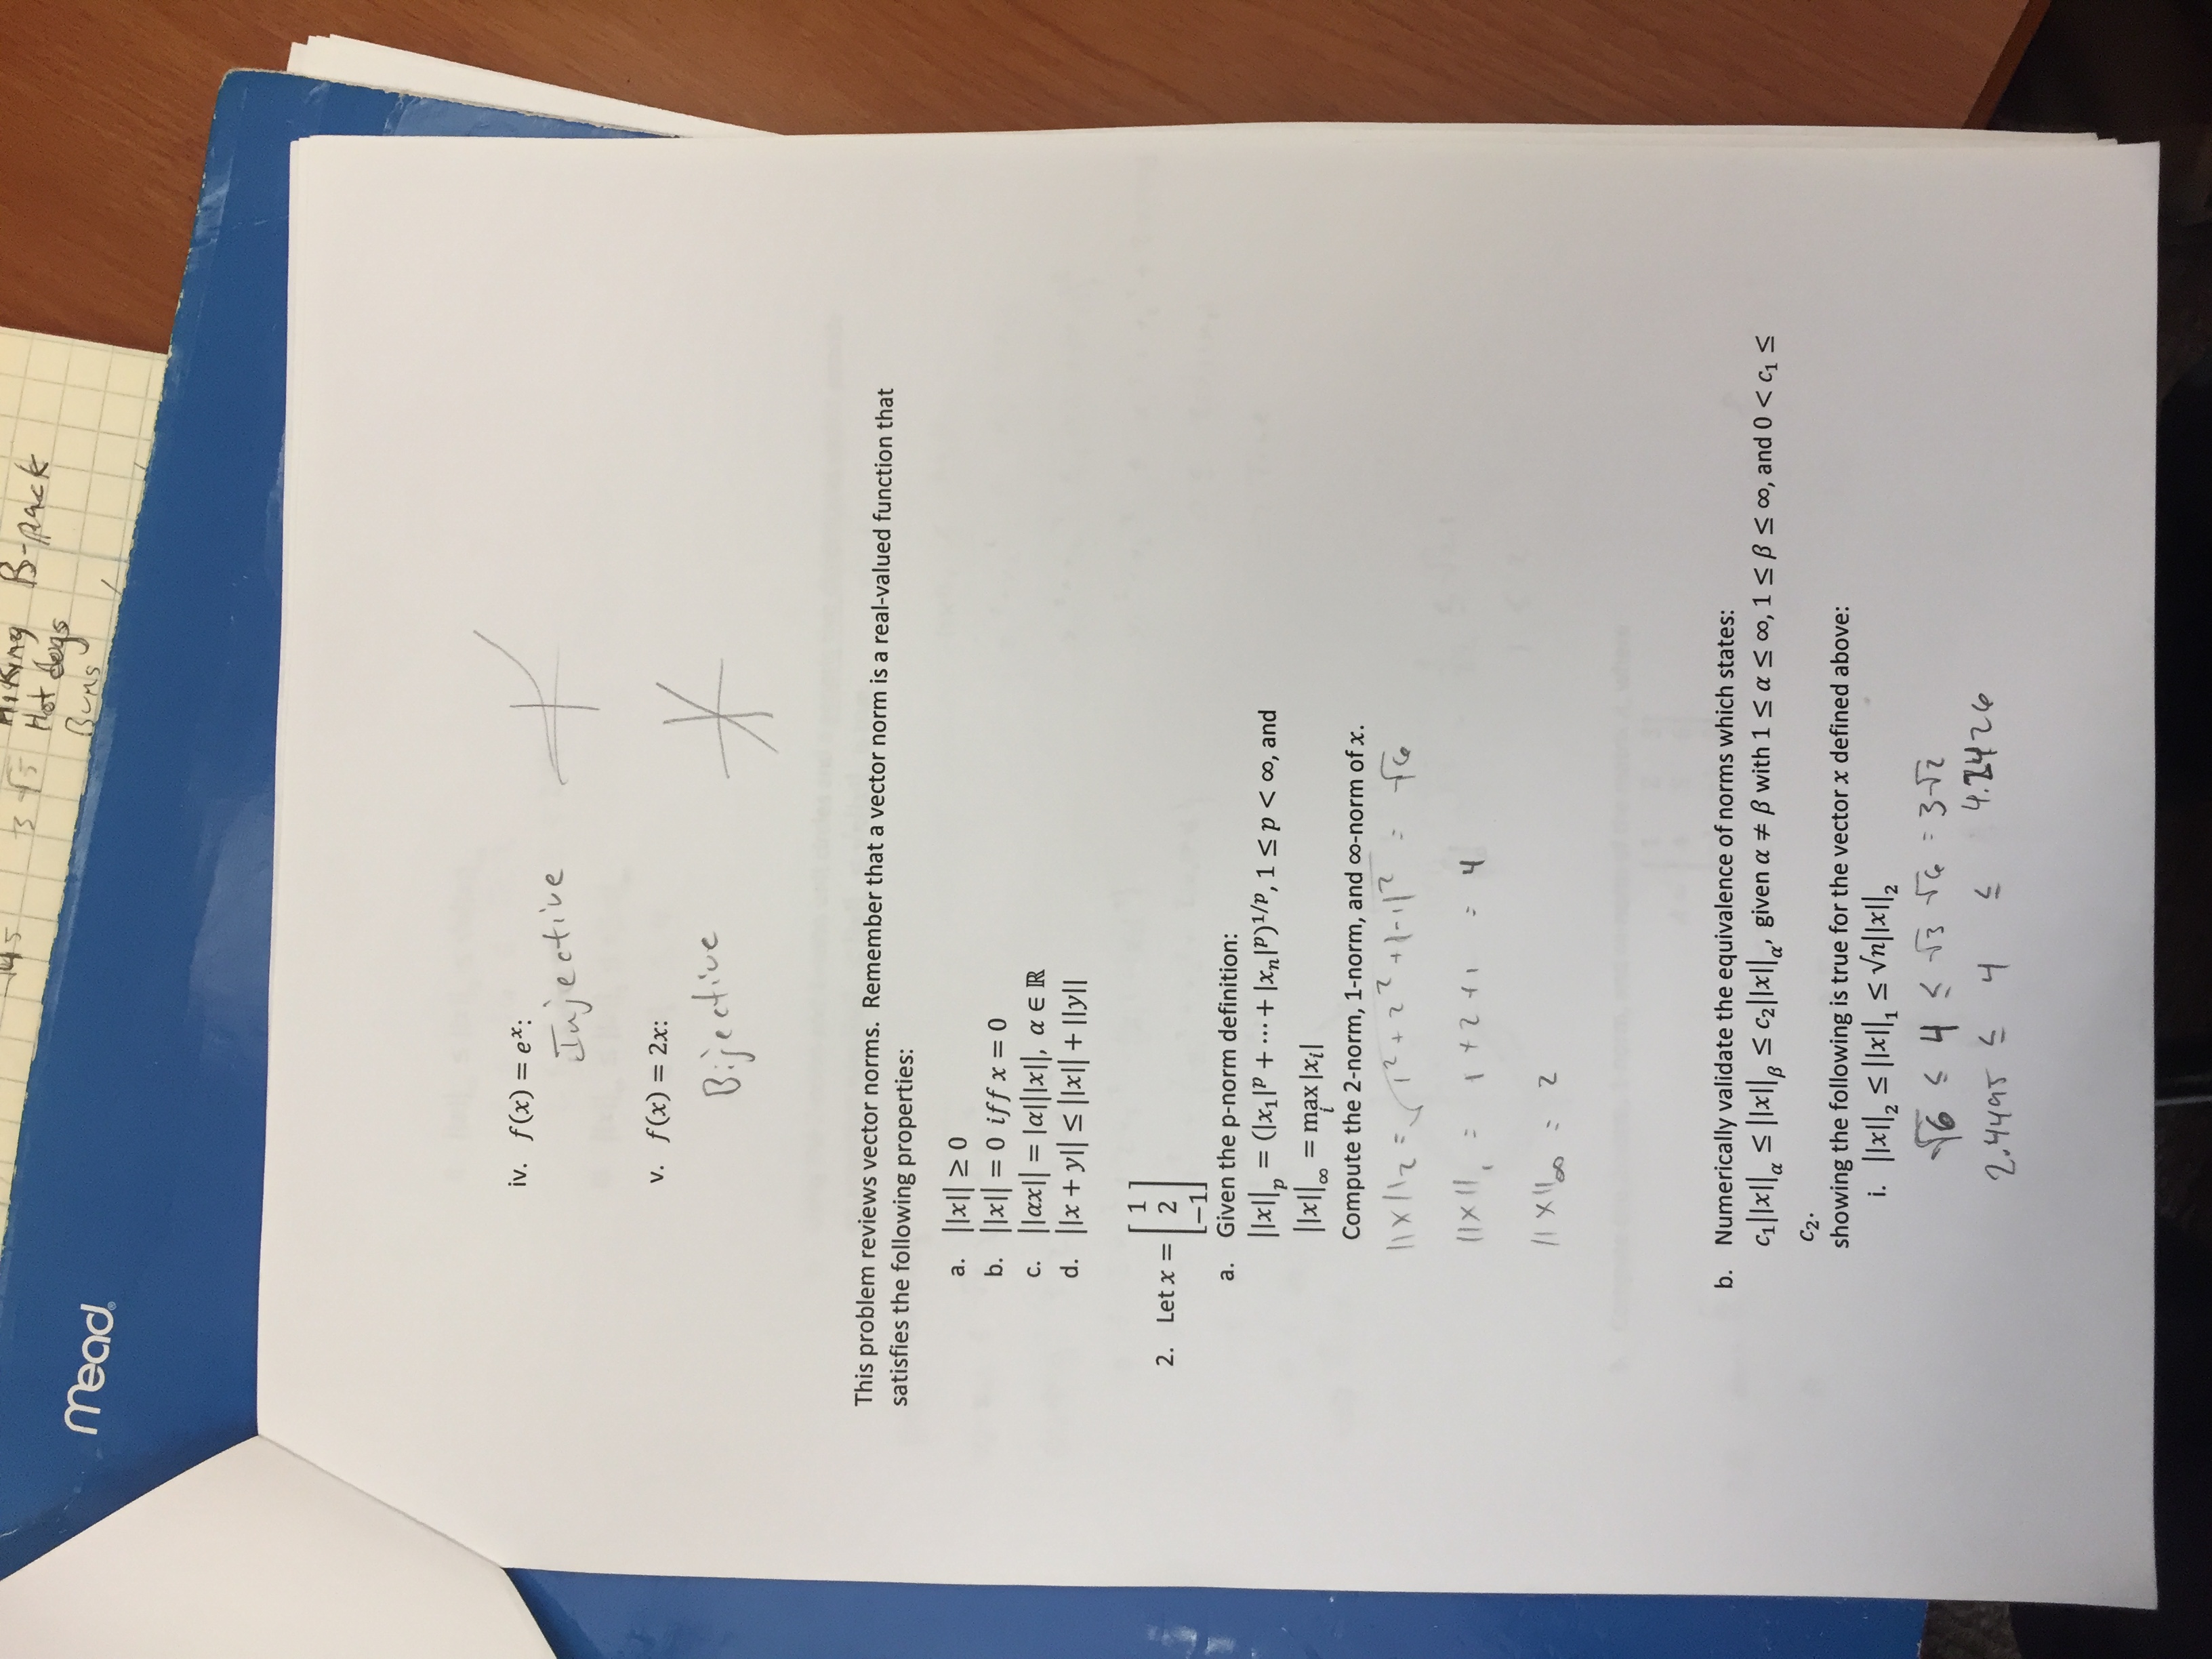 √45 3√5 Hiking B-pack
Hot dogs
Buns
Mead
iv. f(x) = eˣ:
Injective
v. f(x) = 2x:
Bijective
This problem reviews vector norms. Remember that a vector norm is a real-valued function that
satisfies the following properties:
a. ||x|| ≥ 0
b. ||x|| = 0 iff x = 0
c. ||αx|| = |α|||x||, α ∈ ℝ
d. ||x + y|| ≤ ||x|| + ||y||
2. Let x = [1 2 −1]
a. Given the p-norm definition:
||x||ₚ = (|x₁|ᵖ + ⋯ + |xₙ|ᵖ)¹/ᵖ, 1 ≤ p < ∞, and
||x||∞ = max |xᵢ|
i
Compute the 2-norm, 1-norm, and ∞-norm of x.
||x||₂ = √1² + 2² + |-1|² = √6
||x||₁ = 1 + 2 + 1 = 4
||x||∞ = 2
b. Numerically validate the equivalence of norms which states:
c₁||x||α ≤ ||x||β ≤ c₂||x||α, given α ≠ β with 1 ≤ α ≤ ∞, 1 ≤ β ≤ ∞, and 0 < c₁ ≤
c₂.
showing the following is true for the vector x defined above:
i. ||x||₂ ≤ ||x||₁ ≤ √n||x||₂
√6 ≤ 4 ≤ √3 √6 = 3√2
2.4495 ≤ 4 ≤ 4.2426